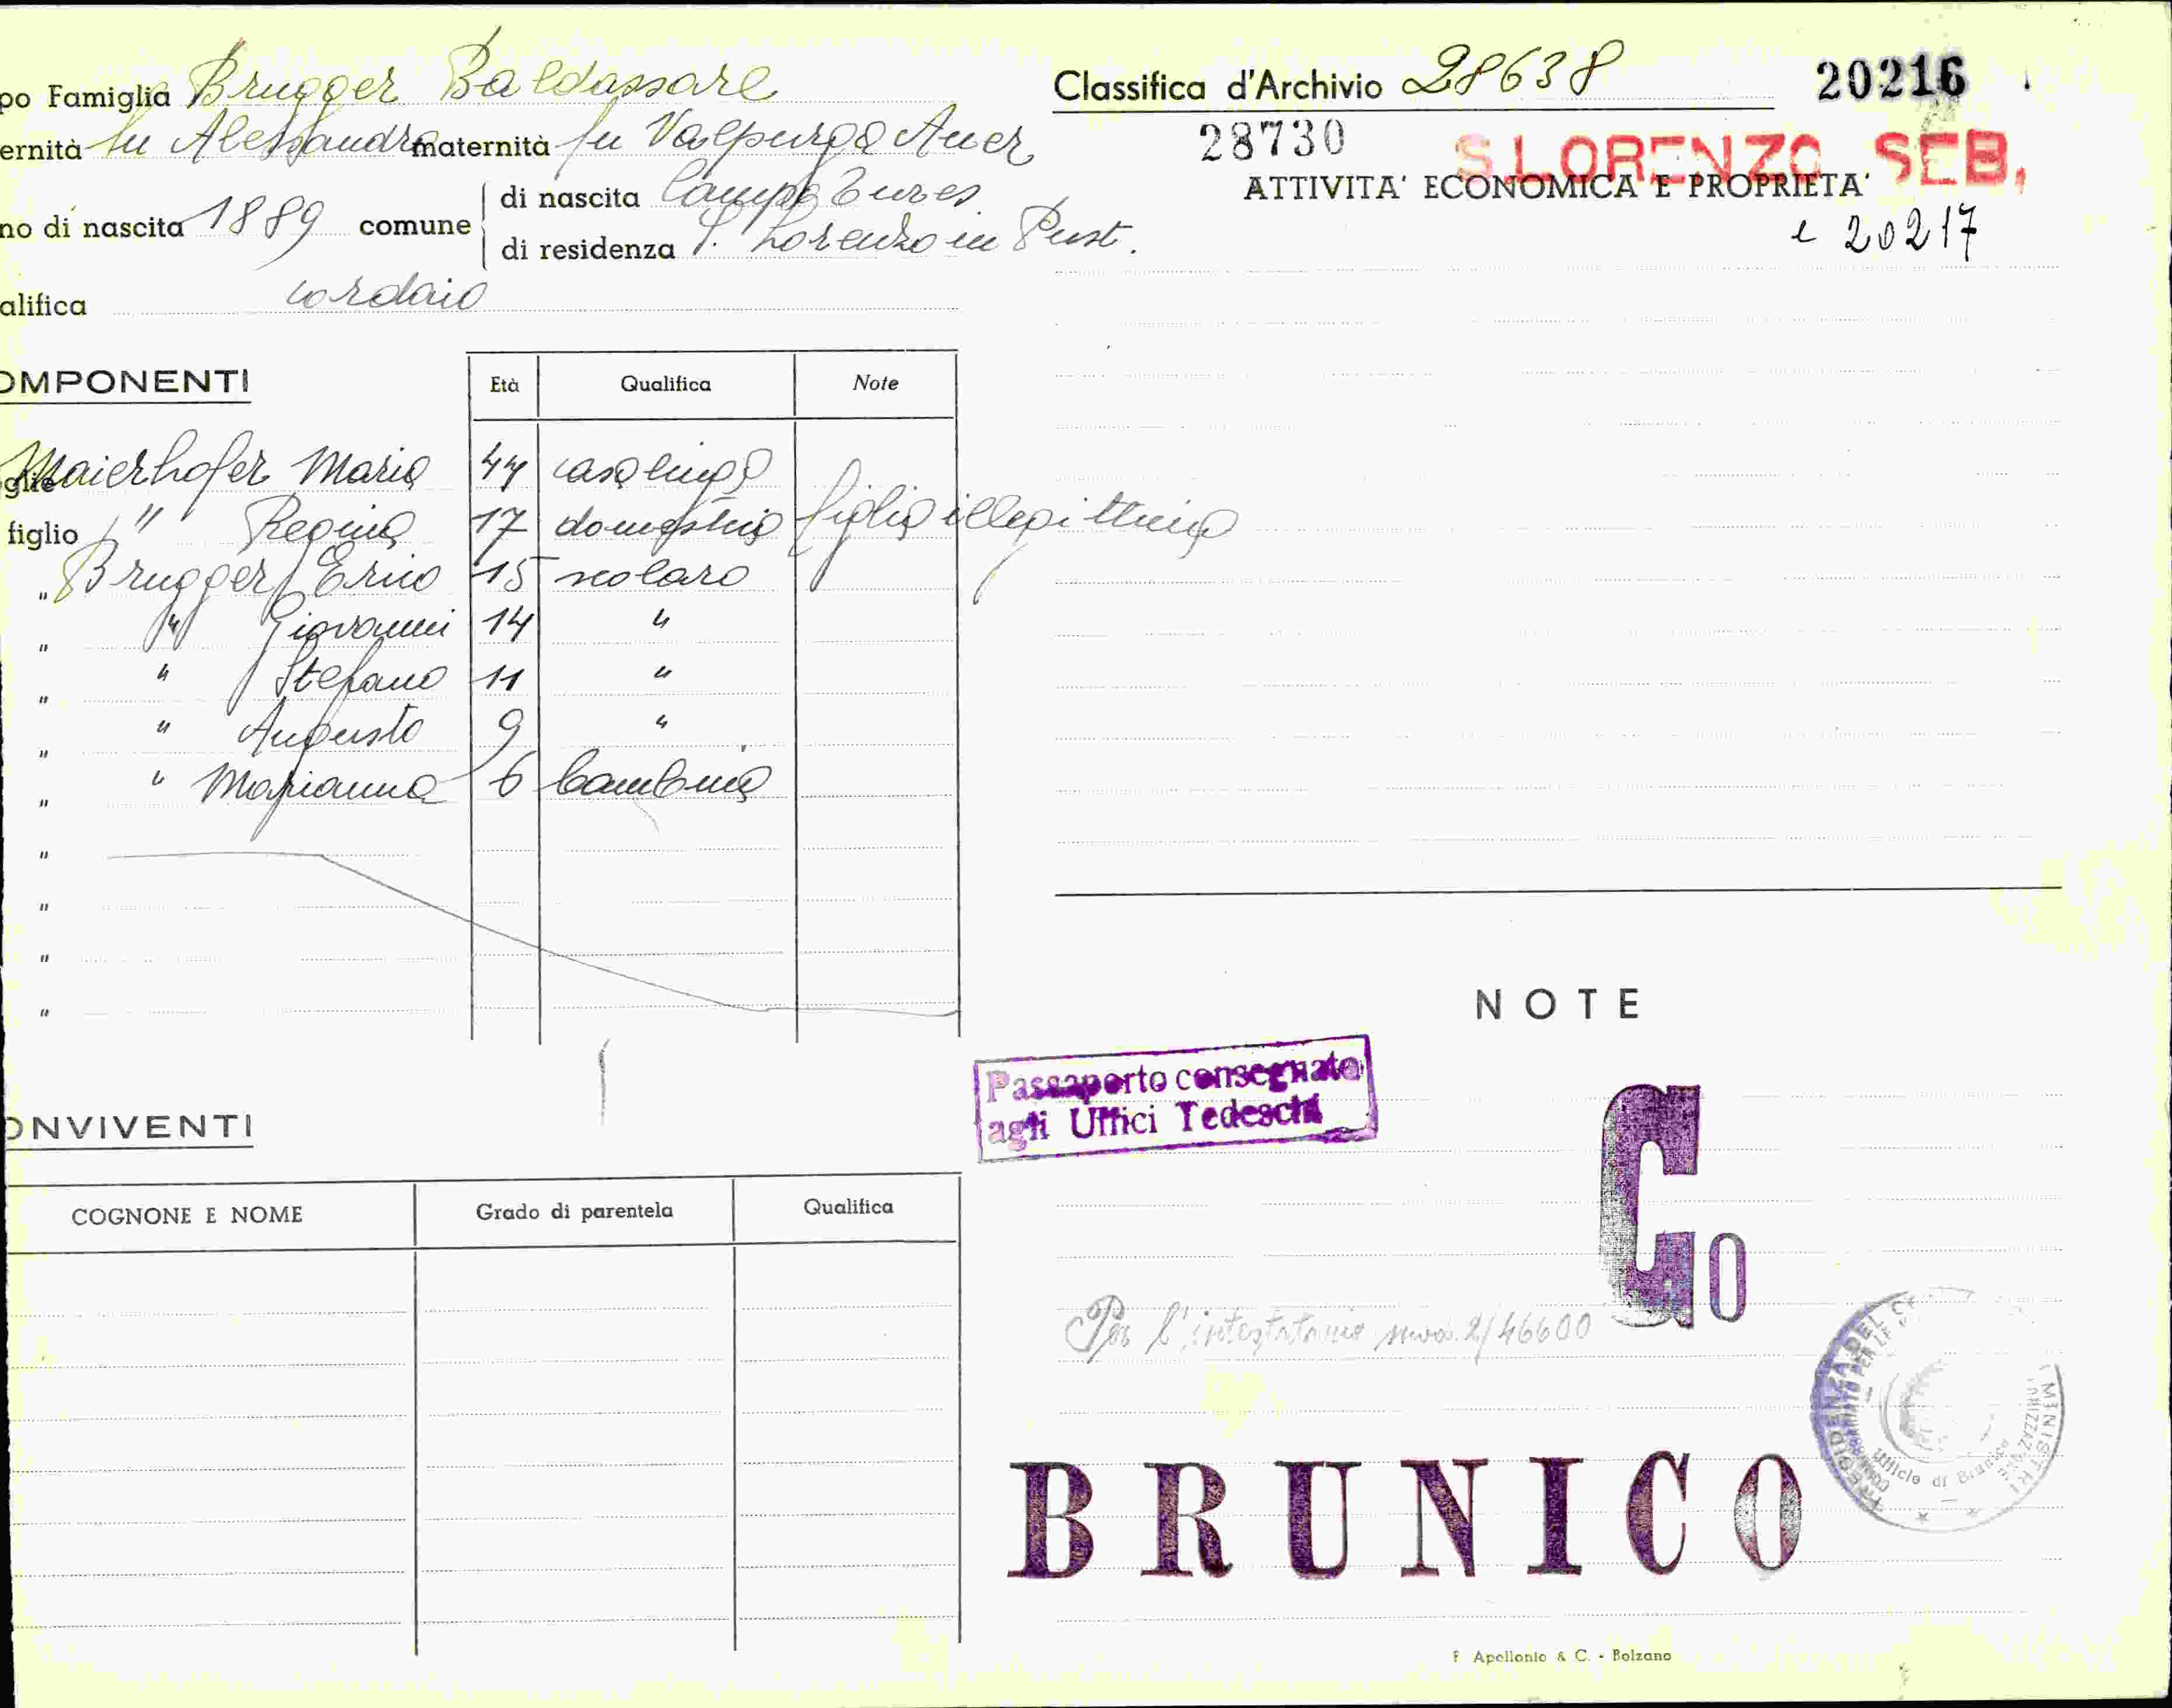 po Famiglia Brugger Baldassare
ernità fu Alessandro maternità fu Valpurga Auer
no di nascita 1889 comune di nascita Campo Tures
di residenza S. Lorenzo in Pust.
alifica cordaio
OMPONENTI Età Qualifica Note
glie Maierhofer Maria 44 casalinga
figlio " Regina 17 domestica figlia illegittima
" Brugger Erico 15 scolaro
" " Giovanni 14 "
" " Stefano 11 "
" " Augusto 9 "
" " Marianna 6 bambina
"
"
"
"
ONVIVENTI
COGNONE E NOME Grado di parentela Qualifica
Classifica d'Archivio 28638 20216
28730 S. LORENZO SEB.
ATTIVITA' ECONOMICA E PROPRIETA'
e 20217
NOTE
Passaporto consegnato
agli Uffici Tedeschi
G O
Per l'intestatario mod. 2/46600
PRESIDENZA DEL MINISTRI
Ufficio di Brunico
BRUNICO
F. Apollonio & C. - Bolzano